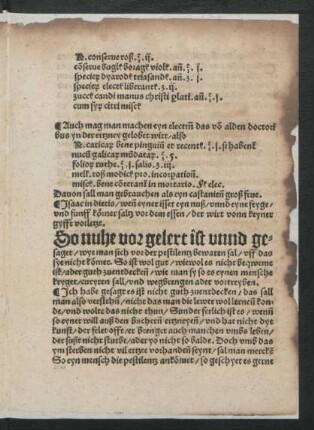 ℞. conserve roſ. ℥.ij.
cõſerve bugl⁊ borag⁊ viol⁊. añ. ℥.ſ.
ſpecieꝝ dyarod⁊ triaſand⁊. añ. ʒ.ſ.
ſpecieꝝ elect⁊ liberant⁊. ʒ.ij.
zucc⁊ candi manus chriſti plat⁊. añ. ℥.ſ.
cum ſyꝝ citri miſc⁊
¶ Auch mag man machen eyn electrũ das võ alden doctori
bus yn der ertzney gelobet wirt/ alſo
℞. caricaꝝ bene pinguiũ et recent⁊.
nucũ galicaꝝ mũdataꝝ. ℥.5.
folioꝝ ruthe. ℥.ſ. ſalis. ʒ.iij
mell. roſ. modicũ pro. incorpation̄.
miſc⁊. bene in mortario. Et elec.
Davon ſall man gebrauchen als eyn caſtanien groß frue.
¶ Iſaac in dietis/ weñ eyner iſſet eyn nuß/ vnnd eyne fyge/
vnd funff körner ſaltz vor dem eſſen/ der wirt vonn keyner
gyfft vorletze.
So nuhe vor gelert iſt vnnd ge-
ſaget/ wye man ſich vor der peſtilentz bewaren ſal/ vff das
ſye nicht kömet. So iſt wol gut/ wiewol es nicht bequeme
iſt/ ader guth zuentdecken/ wie man ſy ſo es eynen menſche
kryget/ curyren ſall/ vnd wegbrengen ader vortreyben.
¶ Ich habe geſagt es iſt nicht guth zuentdecken/ das ſall
man alſo verſtehñ/ nicht das man die lewte wol lerneñ kon-
de/ vnd wolte das nicht thun/ Sunder ferlich iſt es/ wenñ
ſo eyner will auß den bucherñ ertzneyen/ vnd hat nicht dye
kunſt/ der felet offt/ er brenget auch manchen vmbs leben/
der ſuſſe nicht ſturbe/ ader yo nicht ſo balde. Doch vmb das
ym ſterben nicht vil ertzte vorhanden ſeynt/ ſal man merck⁊
So eyn menſch die peſtilentz ankömet/ ſo geſchyet es gerne